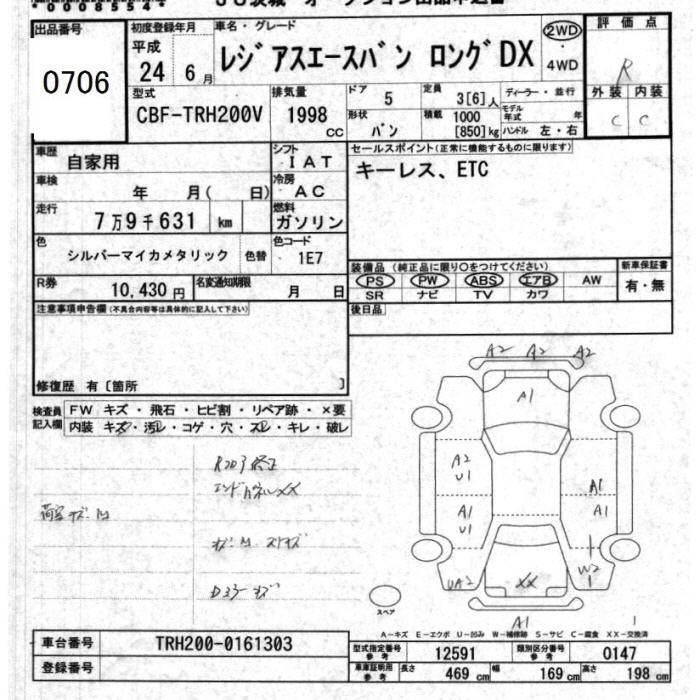 出品番号
0706
初度登録年月
平成
24年 6月
車名・グレード
レジアスエースバン ロングDX
2WD
・
4WD
評価点
R
外装 内装
C C
型式
CBF-TRH200V
排気量
1998
CC
ドア
5
定員
3[6]人
ディーラー・並行
形状
バン
積載
1000
[850]kg
モデル
年式 年
ハンドル 左・右
車歴
自家用
シフト
IAT
セールスポイント(正常に機能するものに限ります)
キーレス、ETC
車検
年 月( 日)
冷房
AC
走行
7万9千631 km
燃料
ガソリン
色
シルバーマイカメタリック
色替
色コード
1E7
R券
10,430円
名変通知期限
月 日
装備品 (純正品に限り○をつけてください)
PS PW ABS エアB AW
SR ナビ TV カワ
新車保証書
有・無
後日品
注意事項申告欄(不具合内容等は具体的に記入して下さい)
修復歴 有〔箇所 〕
検査員
記入欄
FW キズ・飛石・ヒビ割・リペア跡・×要
内装 キズ・汚レ・コゲ・穴・スレ・キレ・破レ
A2 A2 A2
A1
A2
U1
A1
A1
U1
A1
UA2
XX
W2
1
A1
スペア
A-キズ E-エクボ U-凹み W-補修跡 S-サビ C-腐食 XX-交換済
車台番号
TRH200-0161303
登録番号
型式指定番号
参考
12591
類別区分番号
参考
0147
車庫証明用
参考
長さ
469 cm
幅
169 cm
高さ
198 cm